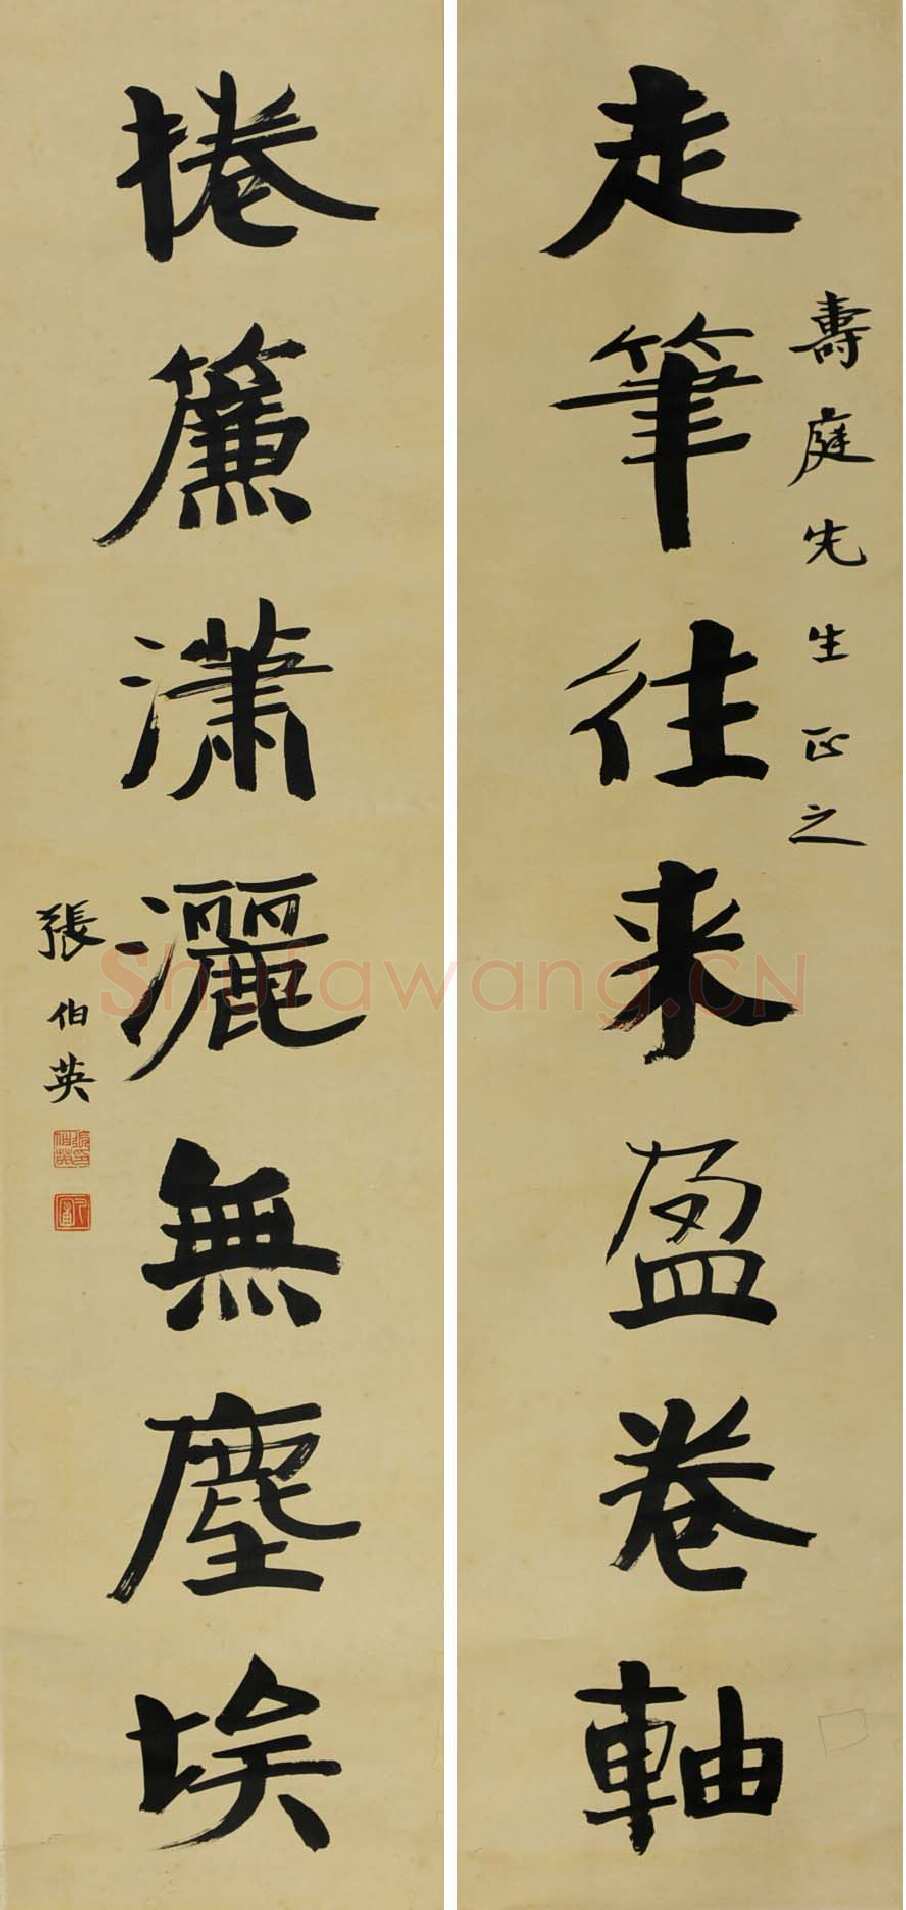 走筆往来盈卷軸
壽庭先生正之
捲簾瀟灑無塵埃
張伯英
Shufawang.CN